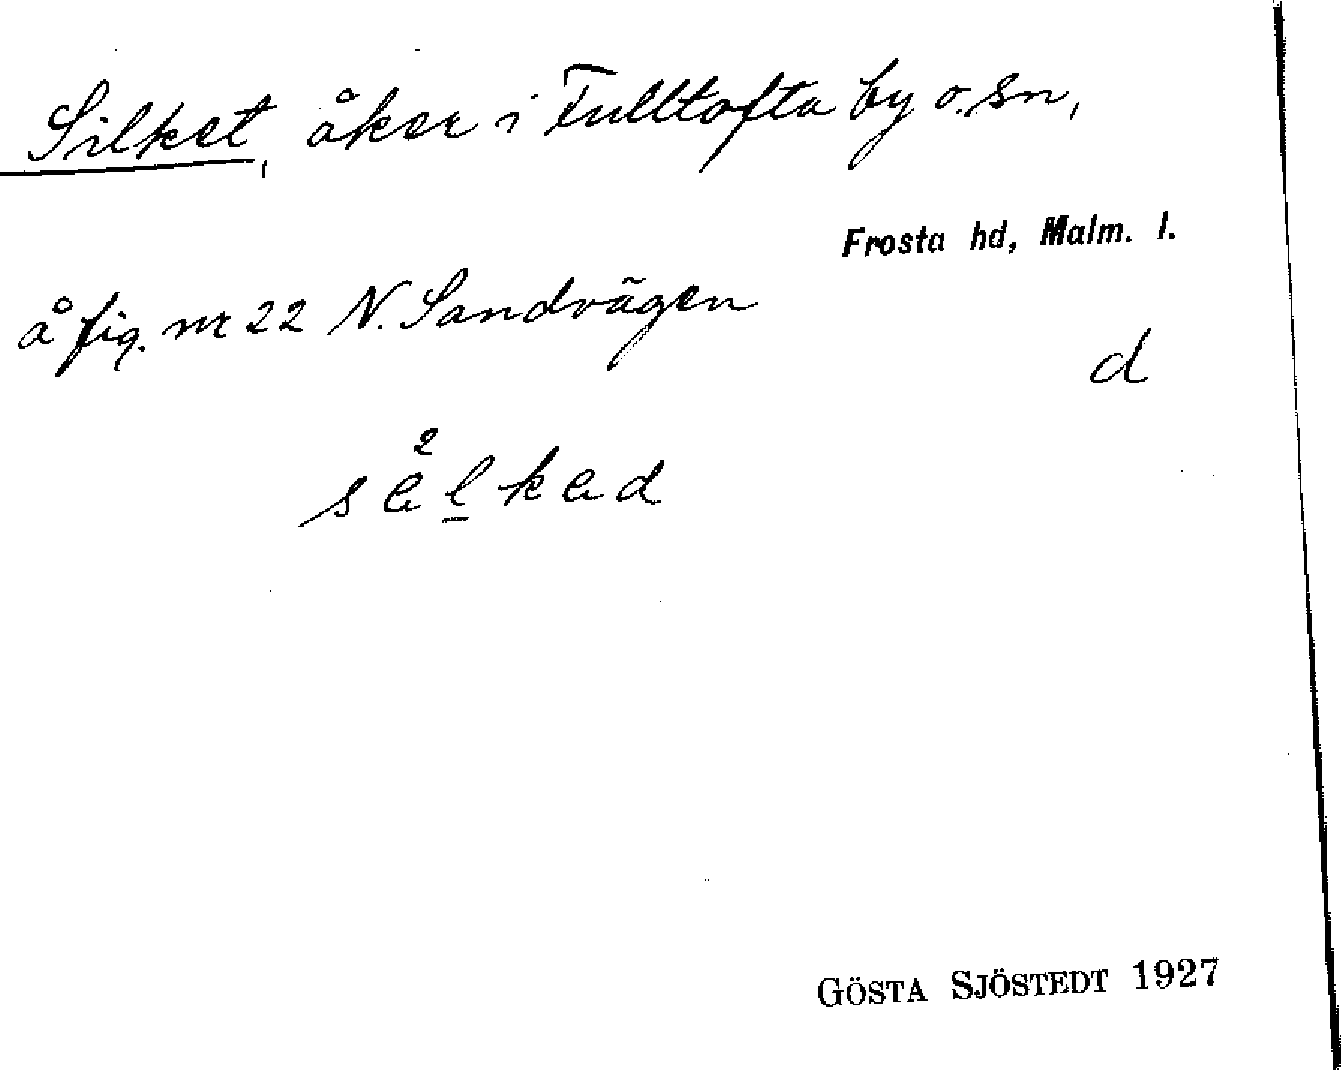 Silket, åker i Fulltofta by o. sn,
Frosta hd, Malm. l.
å fig. nr 22 N. Sandvägen
d
GÖSTA SJÖSTEDT 1927